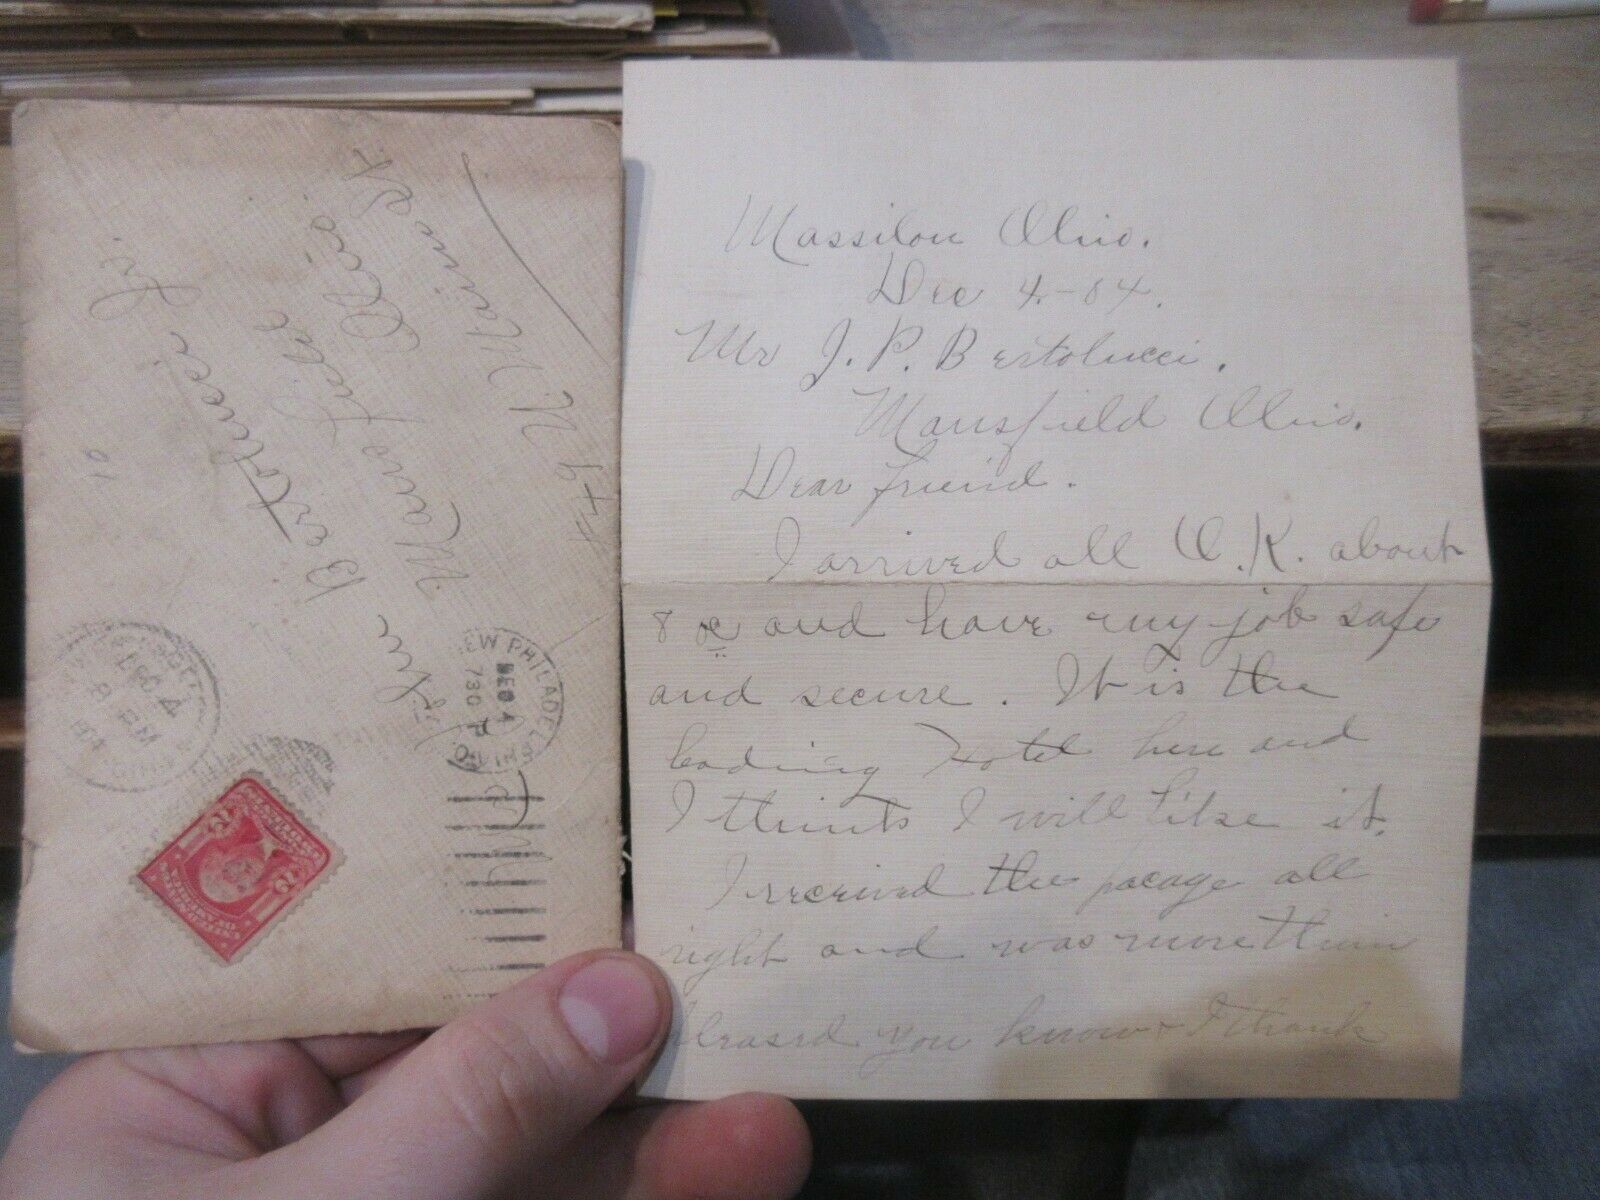 Massilon Ohio.
Dec 4.-04.
Mr J. P. Bertolucci.
Mansfield Ohio.
Dear friend.
I arrived all O.K. about
8 oc and have my job safe
and secure. It is the
leading Hotel here and
I think I will like it.
I received the pacage all
right and was more than
pleased you know + I thank
Bertolucci
Mansfield
Ohio.
N. Main St
10
NEW PHILADEL
DEC 4
730 P
OHIO
DEC 4
8 PM